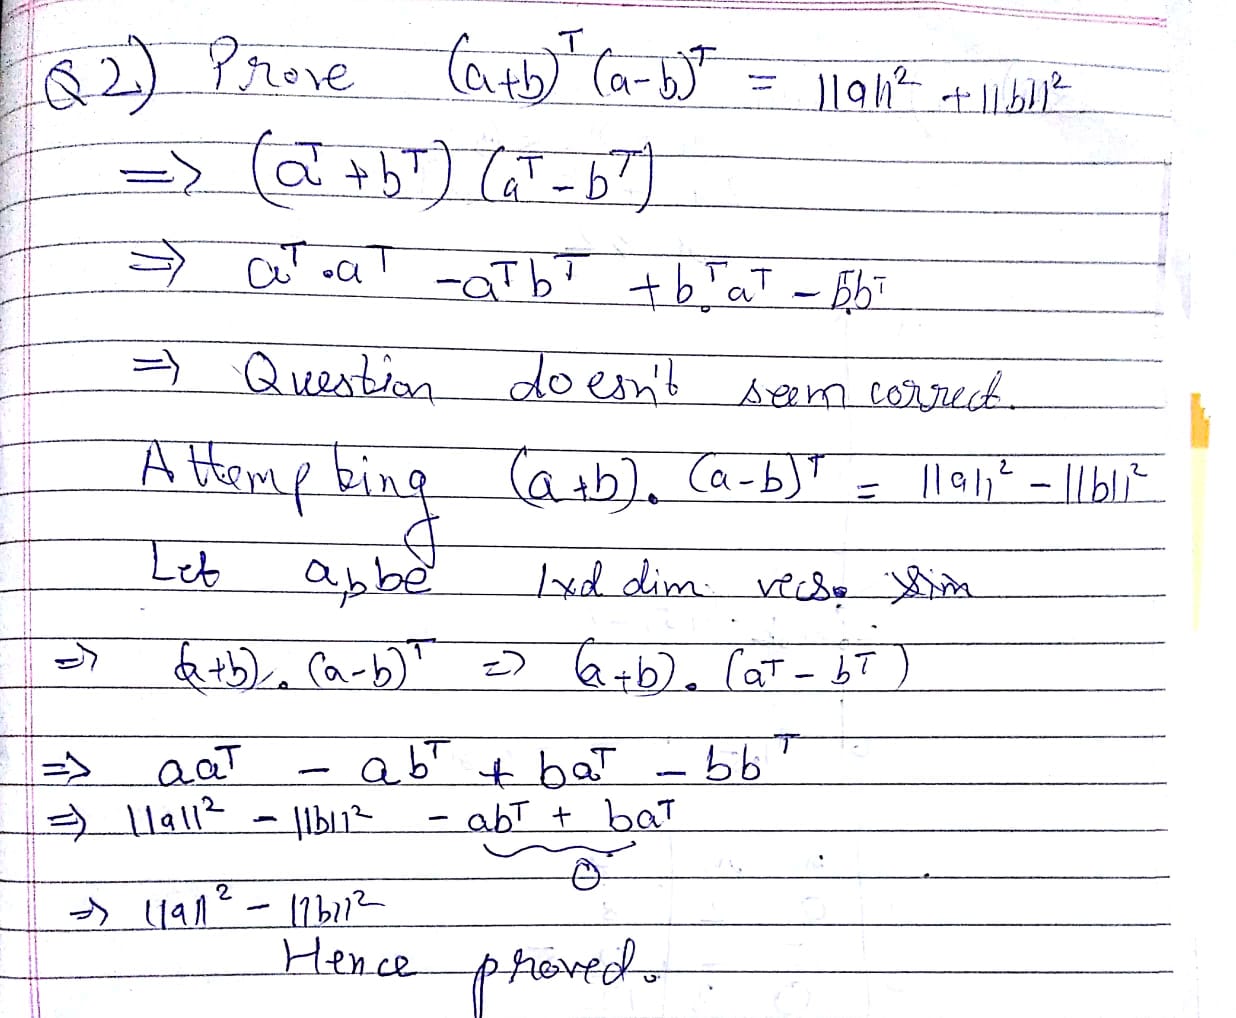 Q2) Prove (a+b)ᵀ (a-b)ᵀ = ||a||² + ||b||²
=> (aᵀ + bᵀ) (aᵀ - bᵀ)
=> aᵀ.aᵀ - aᵀbᵀ + bᵀ.aᵀ - bᵀ.bᵀ
=> Question doesn't seem correct.
Attempting (a+b). (a-b)ᵀ = ||a||² - ||b||²
Let a,b be 1xd dim. vecs.
=> (a+b). (a-b)ᵀ => (a+b). (aᵀ - bᵀ)
=> aaᵀ - abᵀ + baᵀ - bbᵀ
=> ||a||² - ||b||² - abᵀ + baᵀ
0
=> ||a||² - ||b||²
Hence proved.